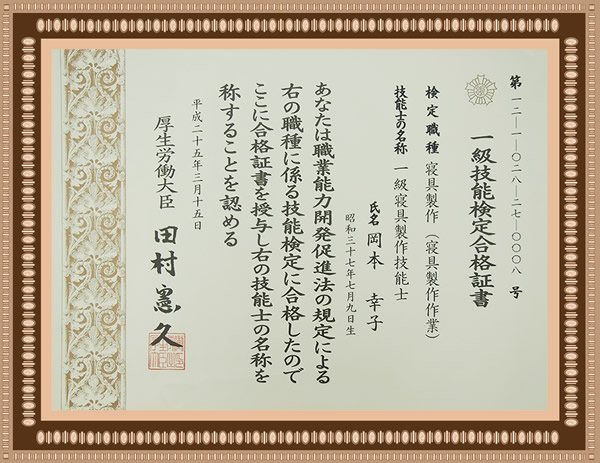 第一二―一―〇二八―二七―〇〇〇八号
一級技能検定合格証書
検定職種 寝具製作(寝具製作作業)
技能士の名称 一級寝具製作技能士
氏名 岡本 幸子
昭和三十七年七月九日生
あなたは職業能力開発促進法の規定による
右の職種に係る技能検定に合格したので
ここに合格証書を授与し右の技能士の名称を
称することを認める
平成二十五年三月十五日
厚生労働大臣 田村憲久